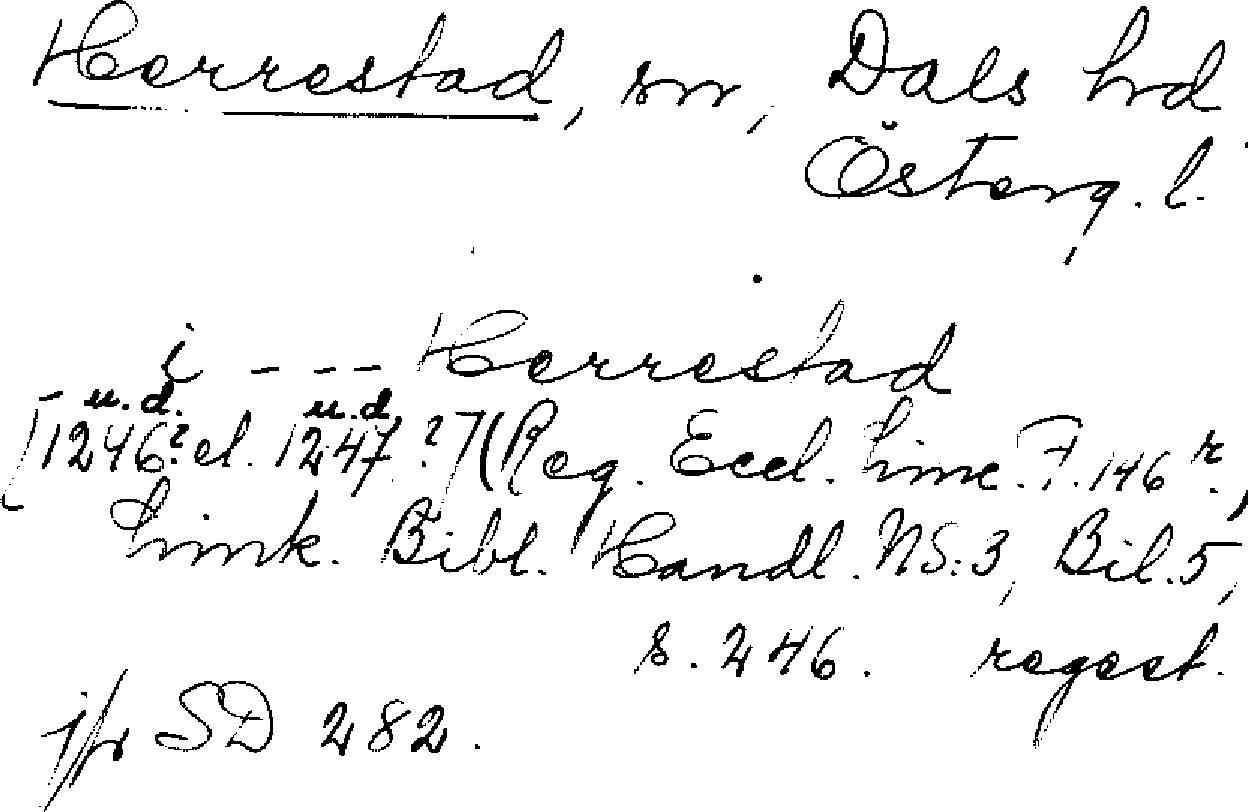 Herrestad, sn, Dals hd
Österg. l.
i - - - Herrestad
u.d. u.d.
[1246? el. 1247?] (Reg. Eccl. Linc. F. 146 r.,
Link. Bibl. Handl. NS:3, Bil. 5,
s. 246. regest.
jfr SD 282.